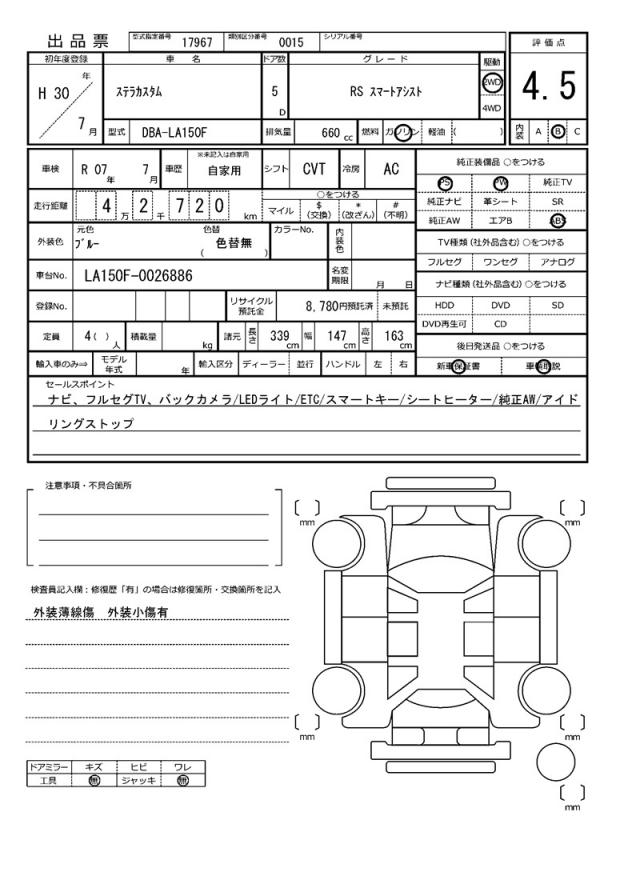 出品票 型式指定番号 17967 類別区分番号 0015 シリアル番号
評価点
4.5
内装 A B C
初年度登録 車名 ドア数 グレード 駆動
H 30 年 7 月 ステラカスタム 5 D RS スマートアシスト 2WD 4WD
型式 DBA-LA150F 排気量 660 cc 燃料 ガソリン 軽油 ( )
車検 R 07 年 7 月 車歴 ※未記入は自家用 自家用 シフト CVT 冷房 AC
走行距離 4 万 2 千 7 2 0 km ○をつける
マイル $ (交換) * (改ざん) # (不明)
外装色 元色 ブルー 色替 ( 色替無 ) カラーNo. 内装色
車台No. LA150F-0026886 名変期限 月 日
登録No. リサイクル預託金 8,780円預託済 未預託
定員 4( ) 人 積載量 kg 諸元 長さ 339 cm 幅 147 cm 高さ 163 cm
輸入車のみ⇒ モデル年式 年 輸入区分 ディーラー 並行 ハンドル 左 右
純正装備品 ○をつける
PS PW 純正TV
純正ナビ 革シート SR
純正AW エアB ABS
TV種類(社外品含む)○をつける
フルセグ ワンセグ アナログ
ナビ種類(社外品含む)○をつける
HDD DVD SD
DVD再生可 CD
後日発送品 ○をつける
新車保証書 車輌取説
セールスポイント
ナビ、フルセグTV、バックカメラ/LEDライト/ETC/スマートキー/シートヒーター/純正AW/アイド
リングストップ
注意事項・不具合箇所
検査員記入欄:修復歴「有」の場合は修復箇所・交換箇所を記入
外装薄線傷 外装小傷有
ドアミラー キズ ヒビ ワレ
工具 無 ジャッキ 無
mm
mm
mm
mm
mm